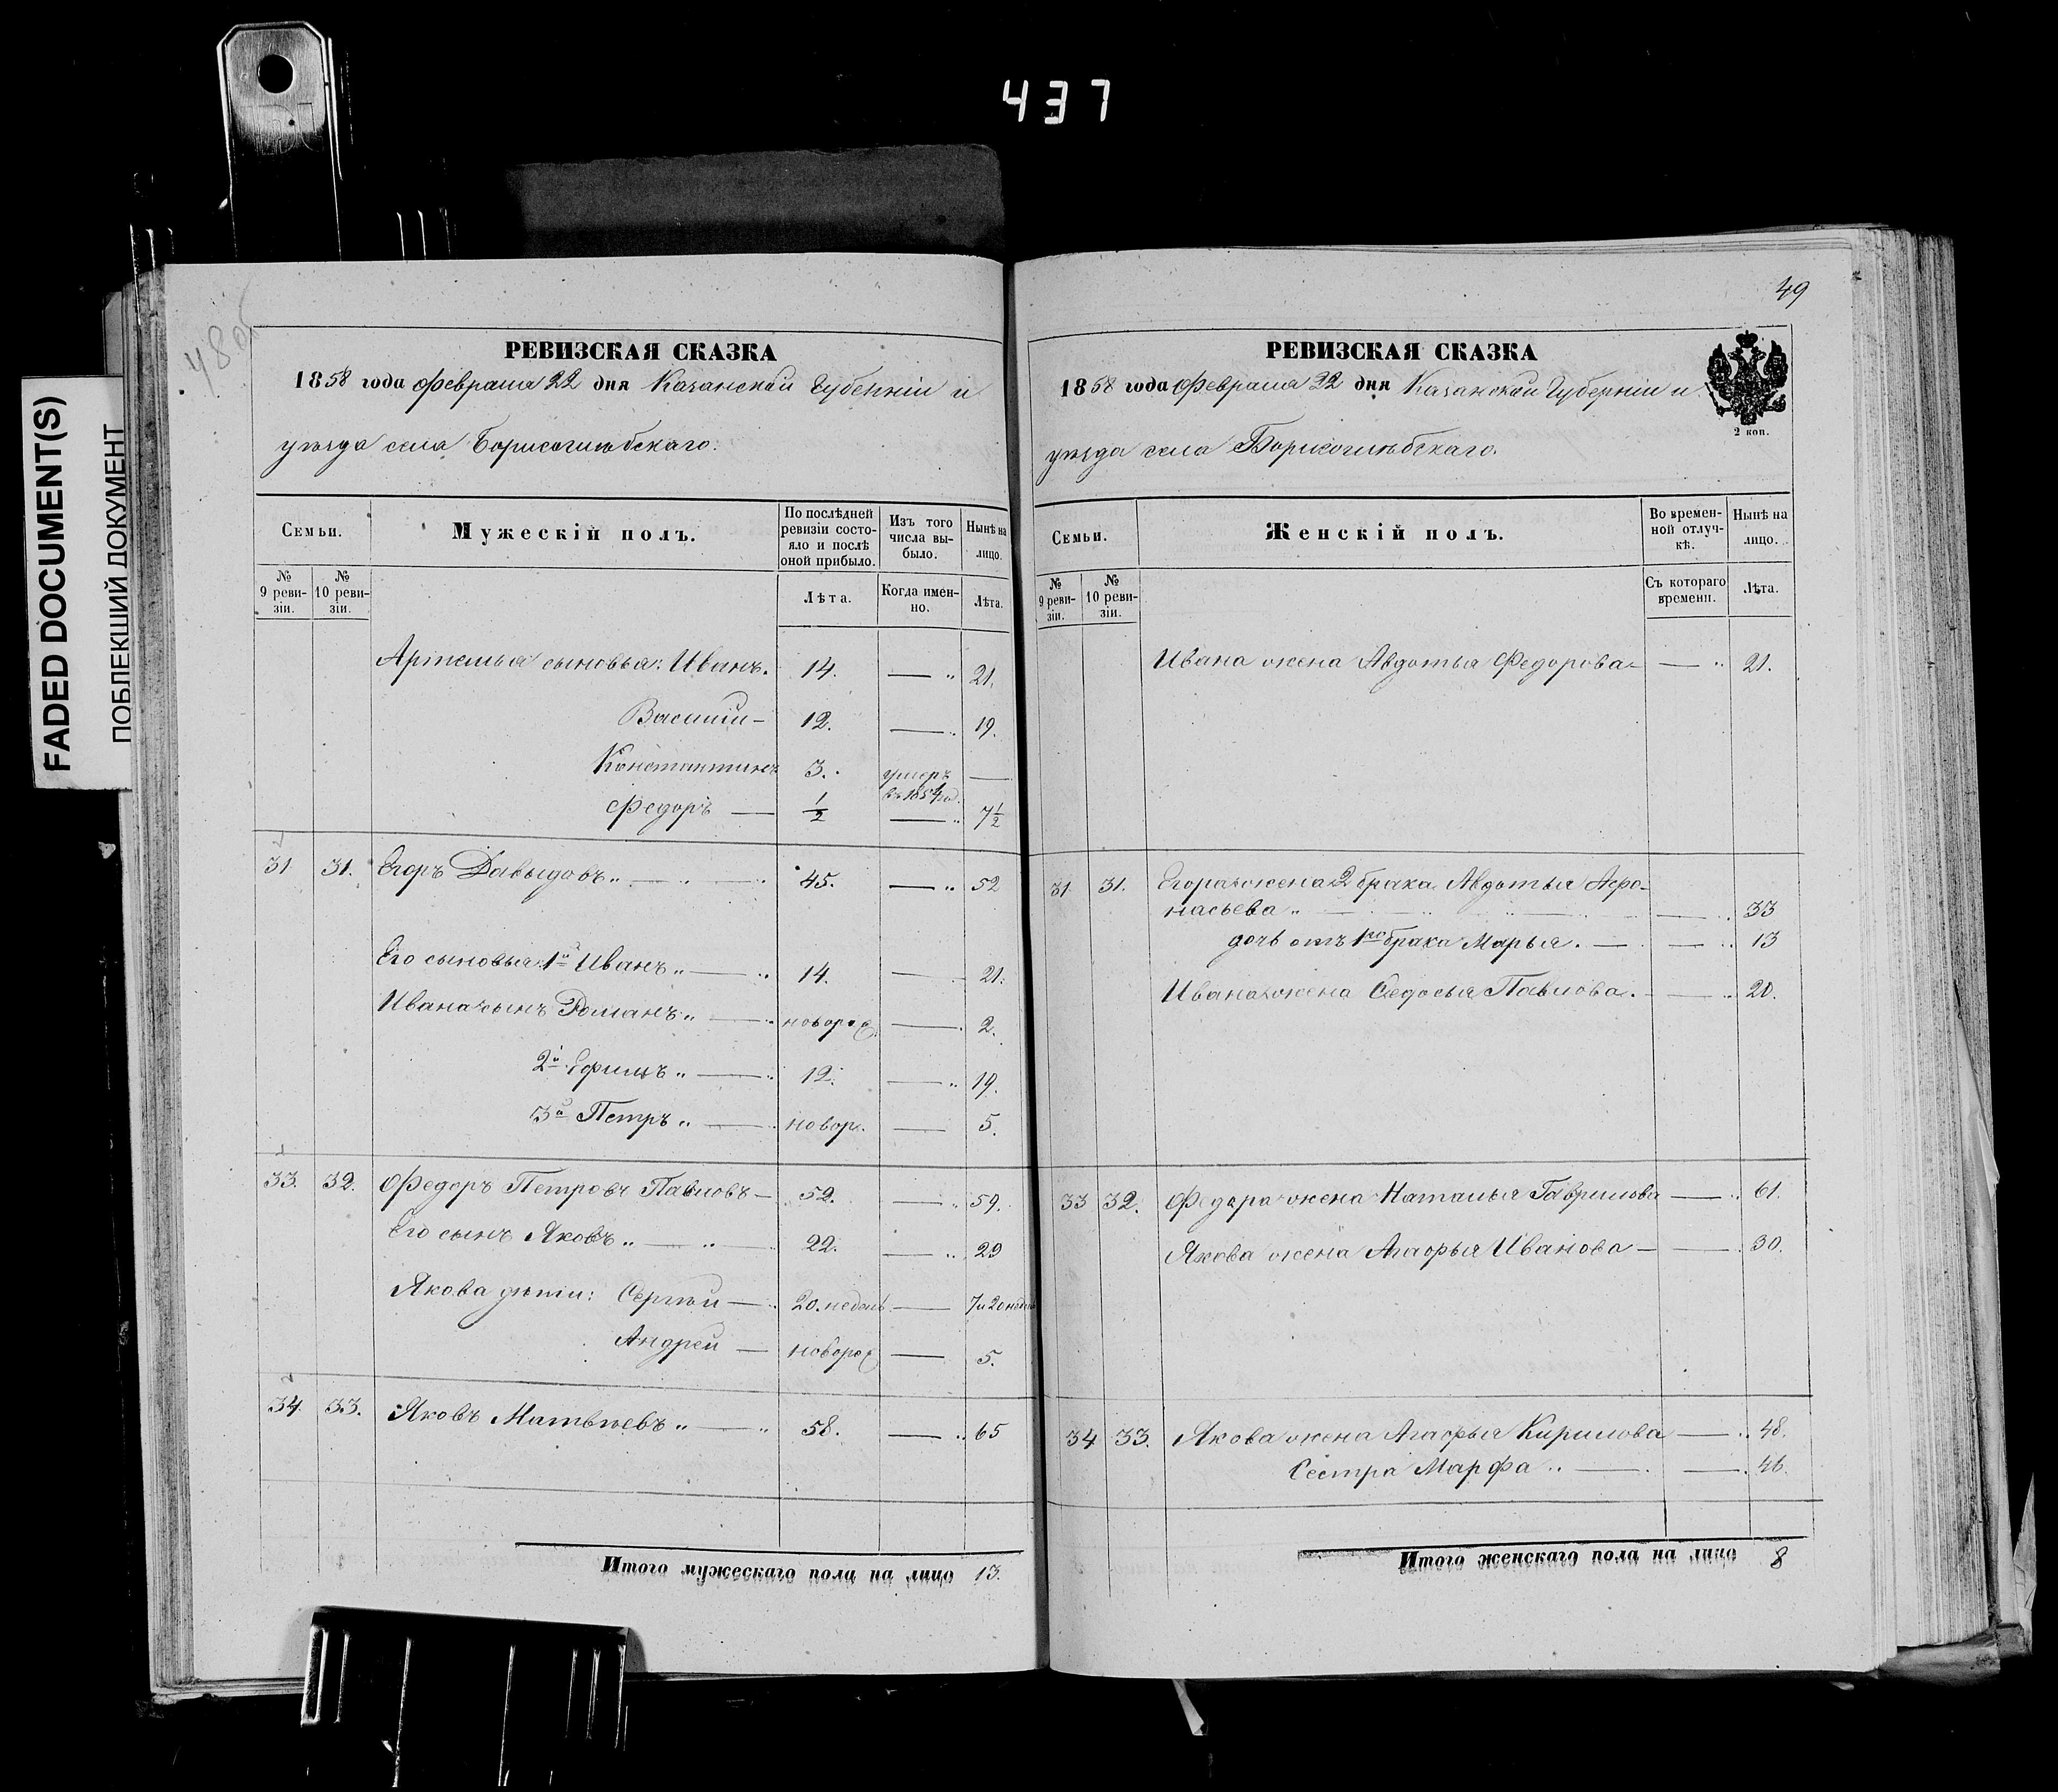 437
FADED DOCUMENT(S)
ПОБЛЕКШИЙ ДОКУМЕНТ
48об
РЕВИЗСКАЯ СКАЗКА
1858 года Февраля 22 дня Казанской Губерніи и
уѣзда села Борисоглѣбскаго.
Семьи.
Мужескій полъ.
По послѣдней ревизіи состо-яло и послѣ оной прибыло.
Изъ того числа вы-было.
Нынѣ на лицо.
№ 9 реви-зіи.
№ 10 реви-зіи.
Лѣта.
Когда имен-но.
Лѣта.
Артемья сыновья: Иванъ. 14. — " 21.
Василій — 12. — " 19.
Константинъ 3. умеръ въ 1854 год. —
Федоръ — 1/2 — " 7 1/2
31 31. Егоръ Давыдовъ " — " — " 45. — " 52
Его сыновья: 1й Иванъ " — " 14. — 21.
Ивана сынъ Романъ " — " новорож — 2.
2й Ефимъ " — " 12. — " 19.
3й Петръ " — новор. — 5.
33. 32. Федоръ Петровъ Павловъ — 52. — " 59.
Его сынъ Яковъ " — " — 22. — " 29
Якова дѣти: Сергѣй — 20. недель — 7 и 20 недель
Андрей — новорож — 5.
34. 33. Яковъ Матвѣевъ " — " 58. — " 65
Итого мужескаго пола на лицо 13.
49
РЕВИЗСКАЯ СКАЗКА
1858 года Февраля 22 дня Казанской Губерніи и
уѣзда села Борисоглѣбскаго.
2 коп.
Семьи.
Женскій полъ.
Во времен-ной отлуч-кѣ.
Нынѣ на лицо.
№ 9 реви-зіи.
№ 10 реви-зіи.
Съ котораго времени.
Лѣта.
Ивана жена Авдотья Федорова — " 21.
31. 31. Егора жена 2 брака Авдотья Афо-
насьева " — " 33
дочь отъ 1го брака Марья. — — " 13
Ивана жена Федосья Павлова. — " 20.
33 32. Федора жена Наталья Гаврилова — " 61.
Якова жена Агафья Иванова — — 30.
34 33. Якова жена Агафья Кирилова — " 48.
Сестра Марфа " — — 46.
Итого женскаго пола на лицо 8